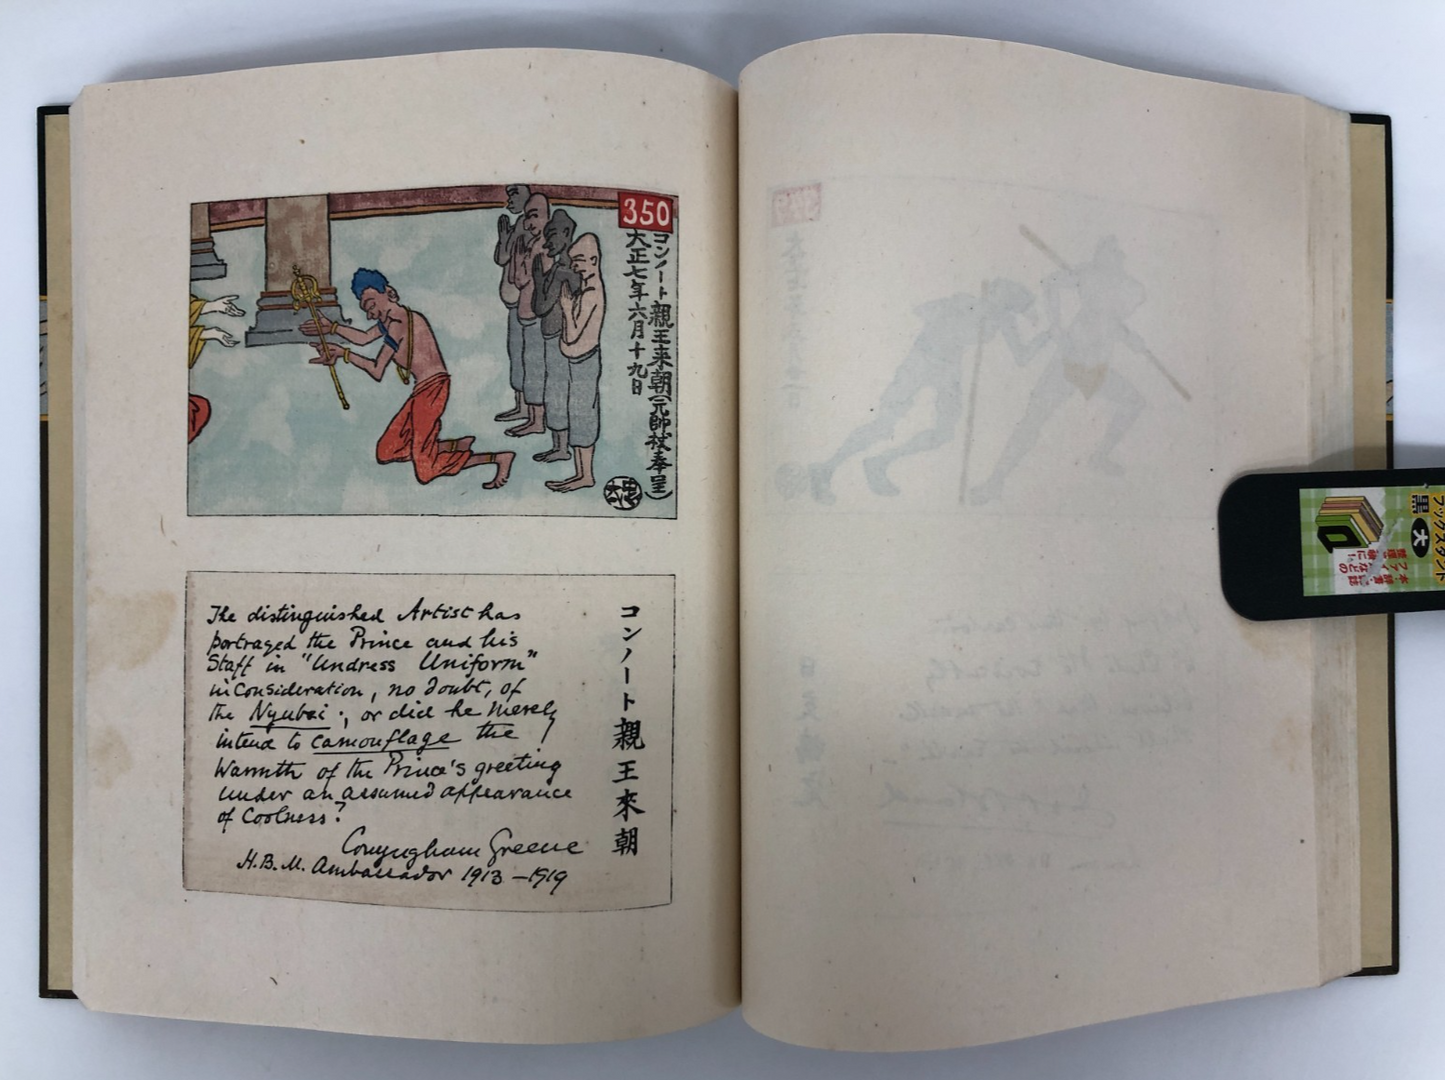 350
コンノート親王来朝(元帥杖奉呈)
大正七年六月十九日
The distinguished Artist has
portrayed the Prince and his
Staff in "Undress Uniform"
in consideration, no doubt, of
the Nyubai ; or did he merely
intend to camouflage the
Warmth of the Prince's greeting
under an assumed appearance
of Coolness?
Conyngham Greene
H.B.M. Ambassador 1913-1919
コンノート親王來朝
ブックスタンド
黒 大